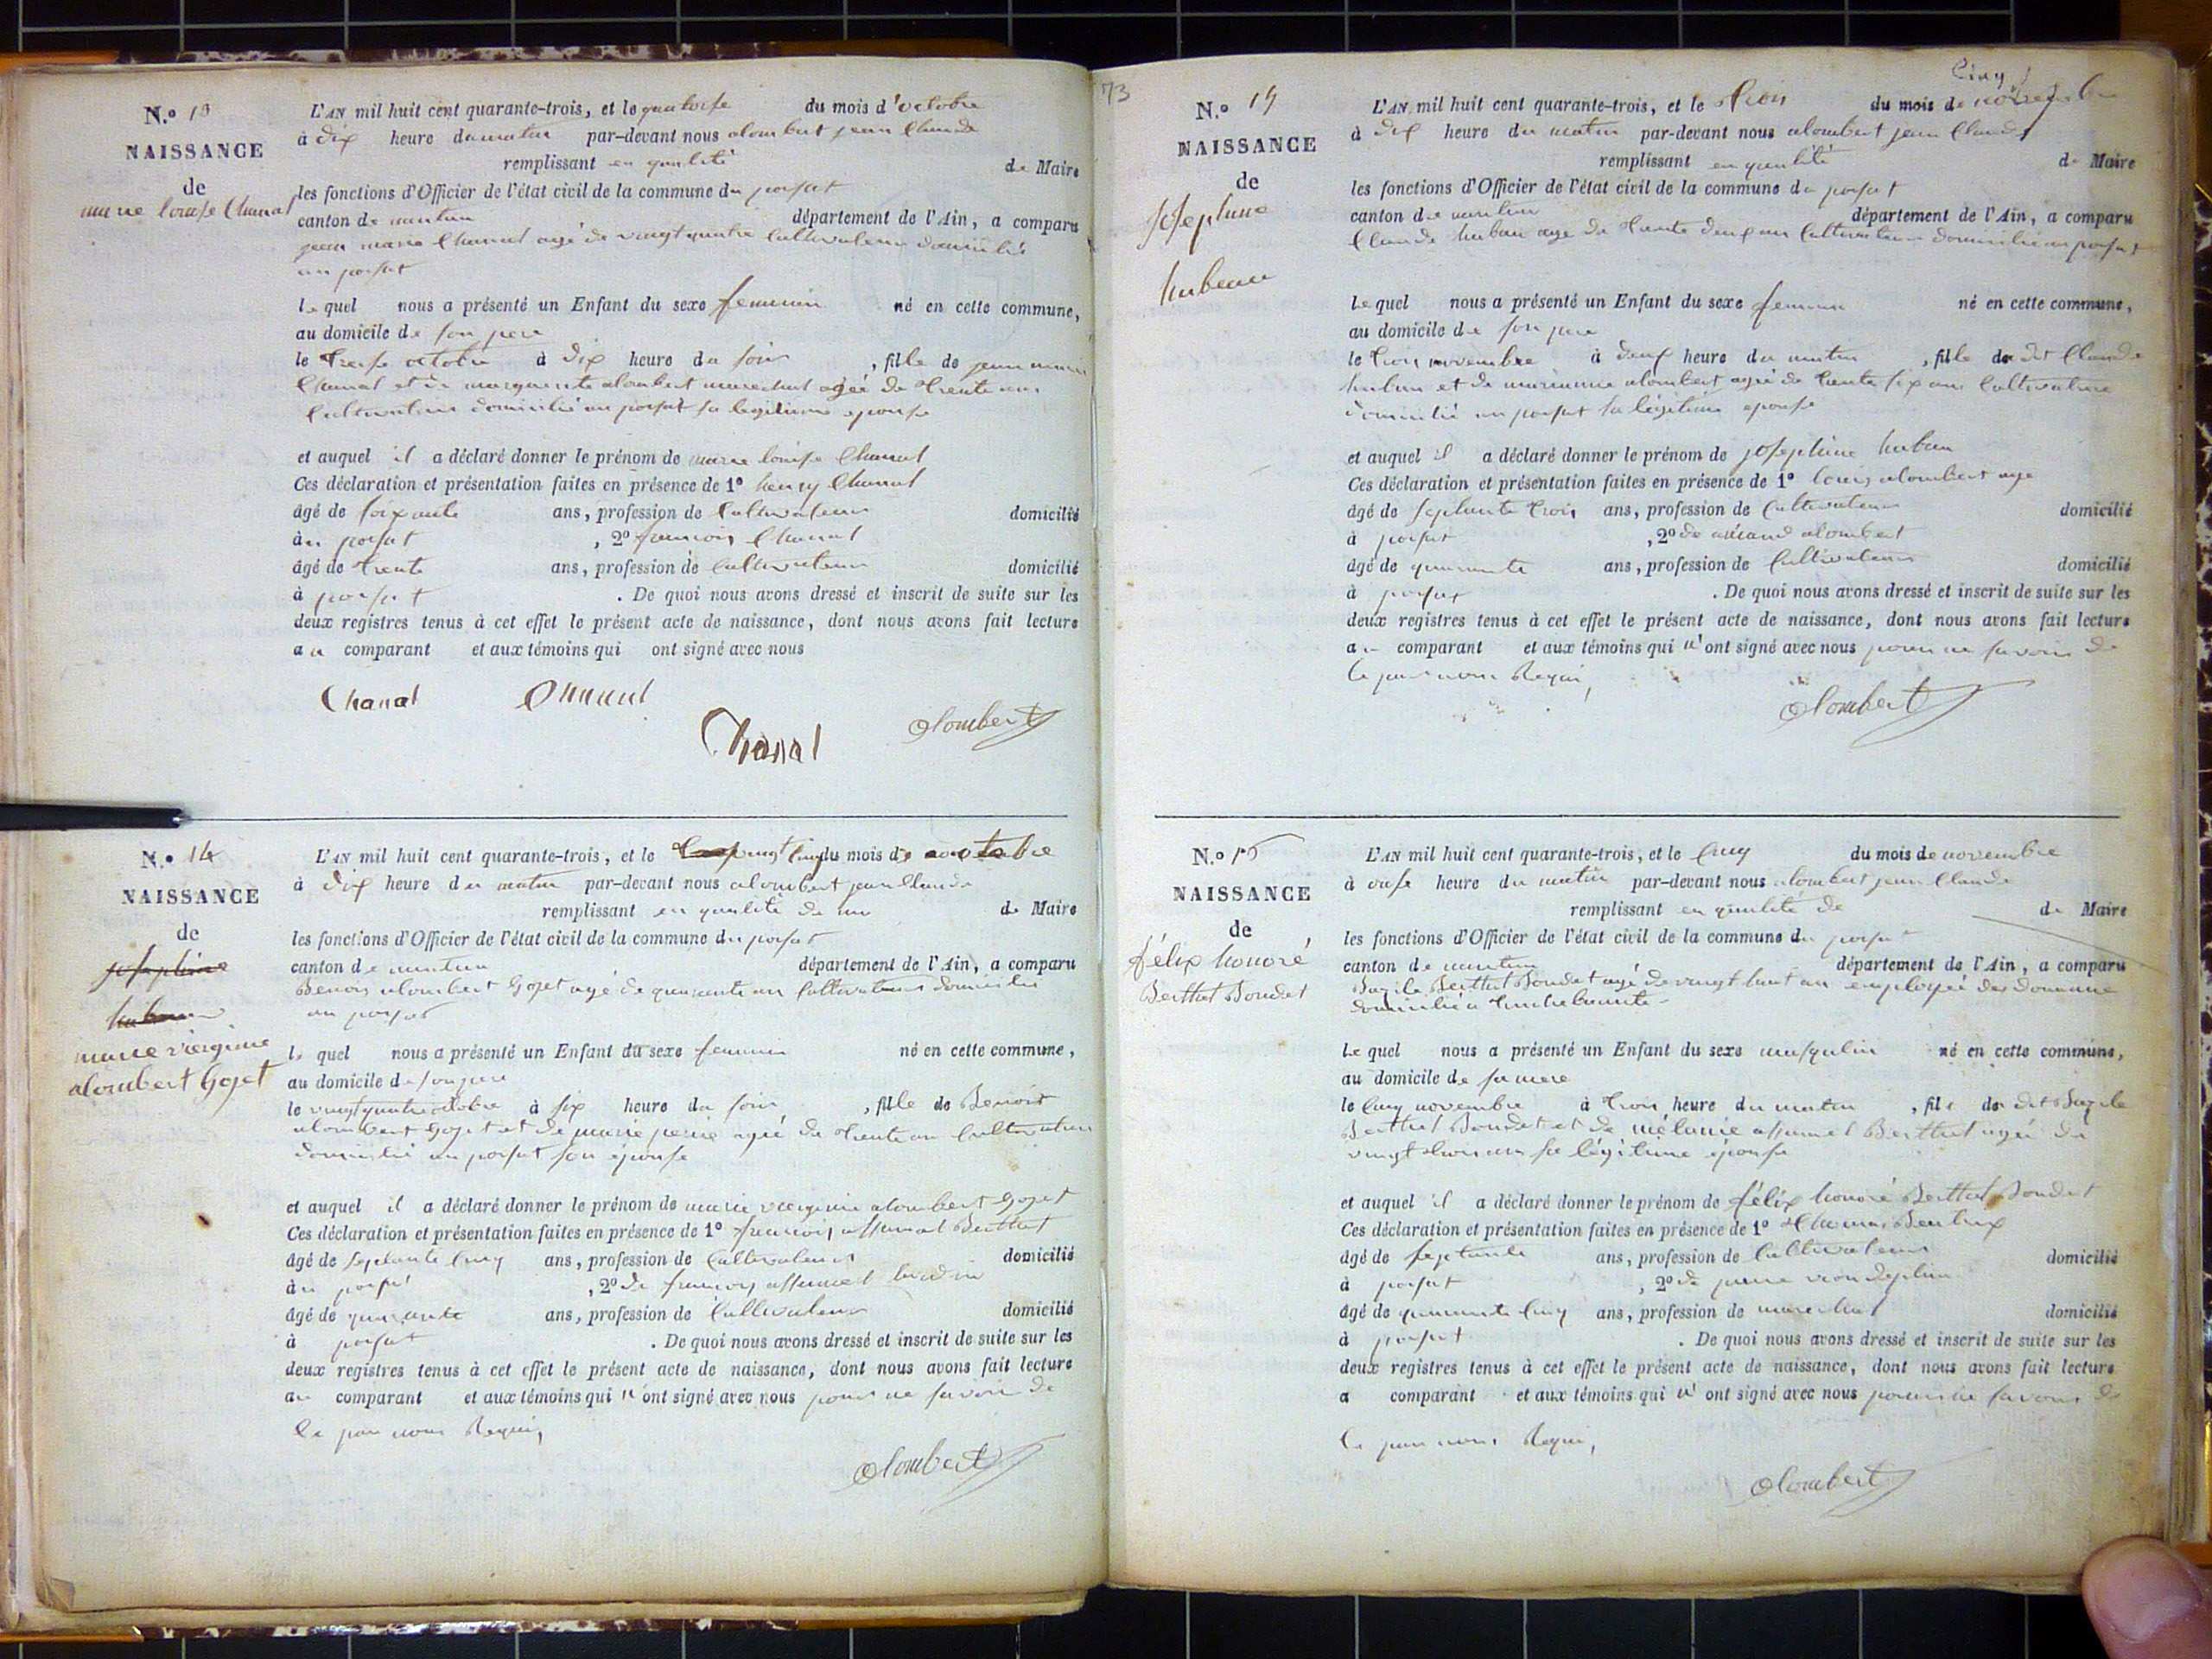 N.º 13
NAISSANCE
de
marie louise Chanal
L'AN mil huit cent quarante-trois, et le quatorse du mois d'octobre
à dix heure du matin par-devant nous alombert jean Claude
remplissant en qualité de Maire
les fonctions d'Officier de l'état civil de la commune du poisat
canton de nantua département de l'Ain, a comparu
jean marie Chanal agé de vingt quatre Cultivateur domicilié
au poisat
le quel nous a présenté un Enfant du sexe feminin né en cette commune,
au domicile de son pere
le treise octobre à dix heure du soir , fille de jean marie
Chanal et de marguerite alombert marechal agée de trente ans
Cultivatrice domicilié au poisat sa legitime epouse
et auquel il a déclaré donner le prénom de marie louise Chanal
Ces déclaration et présentation faites en présence de 1º henry Chanal
âgé de soixante ans, profession de Cultivateur domicilié
au poisat , 2º francois Chanal
âgé de trente ans, profession de Cultivateur domicilié
à poisat . De quoi nous avons dressé et inscrit de suite sur les
deux registres tenus à cet effet le présent acte de naissance, dont nous avons fait lecture
au comparant et aux témoins qui ont signé avec nous
Chanal Chanal
Chanal alombert
N.º 14
NAISSANCE
de
josephine
hubeau
marie virginie
alombert Goget
L'AN mil huit cent quarante-trois, et le vingt cinq du mois de octobre
à dix heure du matin par-devant nous alombert jean Claude
remplissant en qualité de de Maire
les fonctions d'Officier de l'état civil de la commune du poisat
canton de nantua département de l'Ain, a comparu
Benoit alombert Goget agé de quarante an Cultivateur domicilié
au poisat
le quel nous a présenté un Enfant du sexe feminin né en cette commune,
au domicile de son pere
le vingt quatre octobre à six heure du soir , fille de Benoit
alombert Goget et de marie agée de trente an Cultivatrice
domicilié au poisat son épouse
et auquel il a déclaré donner le prénom de marie virginie alombert Goget
Ces déclaration et présentation faites en présence de 1º francois assumel Berthet
âgé de septante cinq ans, profession de Cultivateur domicilié
au poisat , 2º de francois assumel
âgé de quarante ans, profession de Cultivateur domicilié
à poisat . De quoi nous avons dressé et inscrit de suite sur les
deux registres tenus à cet effet le présent acte de naissance, dont nous avons fait lecture
au comparant et aux témoins qui n'ont signé avec nous pour ne savoir de
ce par nous Requis,
alombert
73
N.º 15
NAISSANCE
de
Josephine
hubeau
Cinq
L'AN mil huit cent quarante-trois, et le trois du mois de novembre
à dix heure du matin par-devant nous alombert jean Claude
remplissant en qualité de Maire
les fonctions d'Officier de l'état civil de la commune du poisat
canton de nantua département de l'Ain, a comparu
Claude hubau age de trente deux an Cultivateur domicilié au poisat
le quel nous a présenté un Enfant du sexe feminin né en cette commune,
au domicile de son pere
le trois novembre à deux heure du matin , fille du dit Claude
hubau et de marianne alombert agée de trente six ans Cultivatrice
domicilié au poisat sa légitime epouse
et auquel il a déclaré donner le prénom de josephine hubau
Ces déclaration et présentation faites en présence de 1º louis alombert age
âgé de septante trois ans, profession de Cultivateur domicilié
à poisat , 2º de alombert
âgé de quarante ans, profession de Cultivateur domicilié
à poisat . De quoi nous avons dressé et inscrit de suite sur les
deux registres tenus à cet effet le présent acte de naissance, dont nous avons fait lecture
au comparant et aux témoins qui n'ont signé avec nous pour ne savoir de
ce par nous Requis,
alombert
N.º 16
NAISSANCE
de
félix honoré
Berthet Boudet
L'AN mil huit cent quarante-trois, et le Cinq du mois de novembre
à onse heure du matin par-devant nous alombert jean Claude
remplissant en qualité de de Maire
les fonctions d'Officier de l'état civil de la commune du poisat
canton de nantua département de l'Ain, a comparu
Bazile Berthet Boudet agé de vingt huit an employée des douane
domicilié a
le quel nous a présenté un Enfant du sexe masqulin né en cette commune,
au domicile de sa mere
le Cinq novembre à trois heure du matin , fils du dit Bazile
Berthet Boudet et de mélanie assumel Berthet agée de
vingt trois an sa légitime épouse
et auquel il a déclaré donner le prénom de félix honoré Berthet Boudet
Ces déclaration et présentation faites en présence de 1º thomas
âgé de septante ans, profession de Cultivateur domicilié
à poisat , 2º de
âgé de quarante cinq ans, profession de marechal domicilié
à poisat . De quoi nous avons dressé et inscrit de suite sur les
deux registres tenus à cet effet le présent acte de naissance, dont nous avons fait lecture
a comparant et aux témoins qui n'ont signé avec nous pour ne savoir de
ce par nous Requis,
alombert